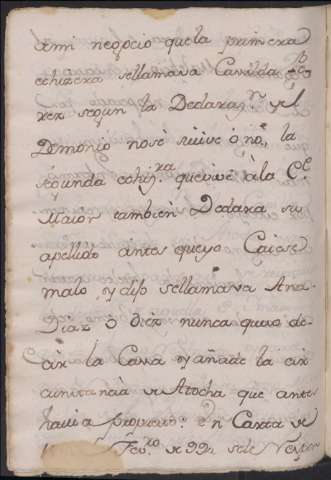 demi negocio que la primera
echizera sellamava Casilda
rez segun la Declaraz.n del
Demonio nose si uive ô no, la
segunda echiz.ra que vive â la C.e
Maior tambien Declara su
apellido antes queyo Caiese
malo, y dijo sellamava Ana
Diaz ô diez nunca quiso de-
cir la Cassa y añade la cir
cunstancia de Atocha que antes
havia propuesto: en Carta de
Feb.ro de 99